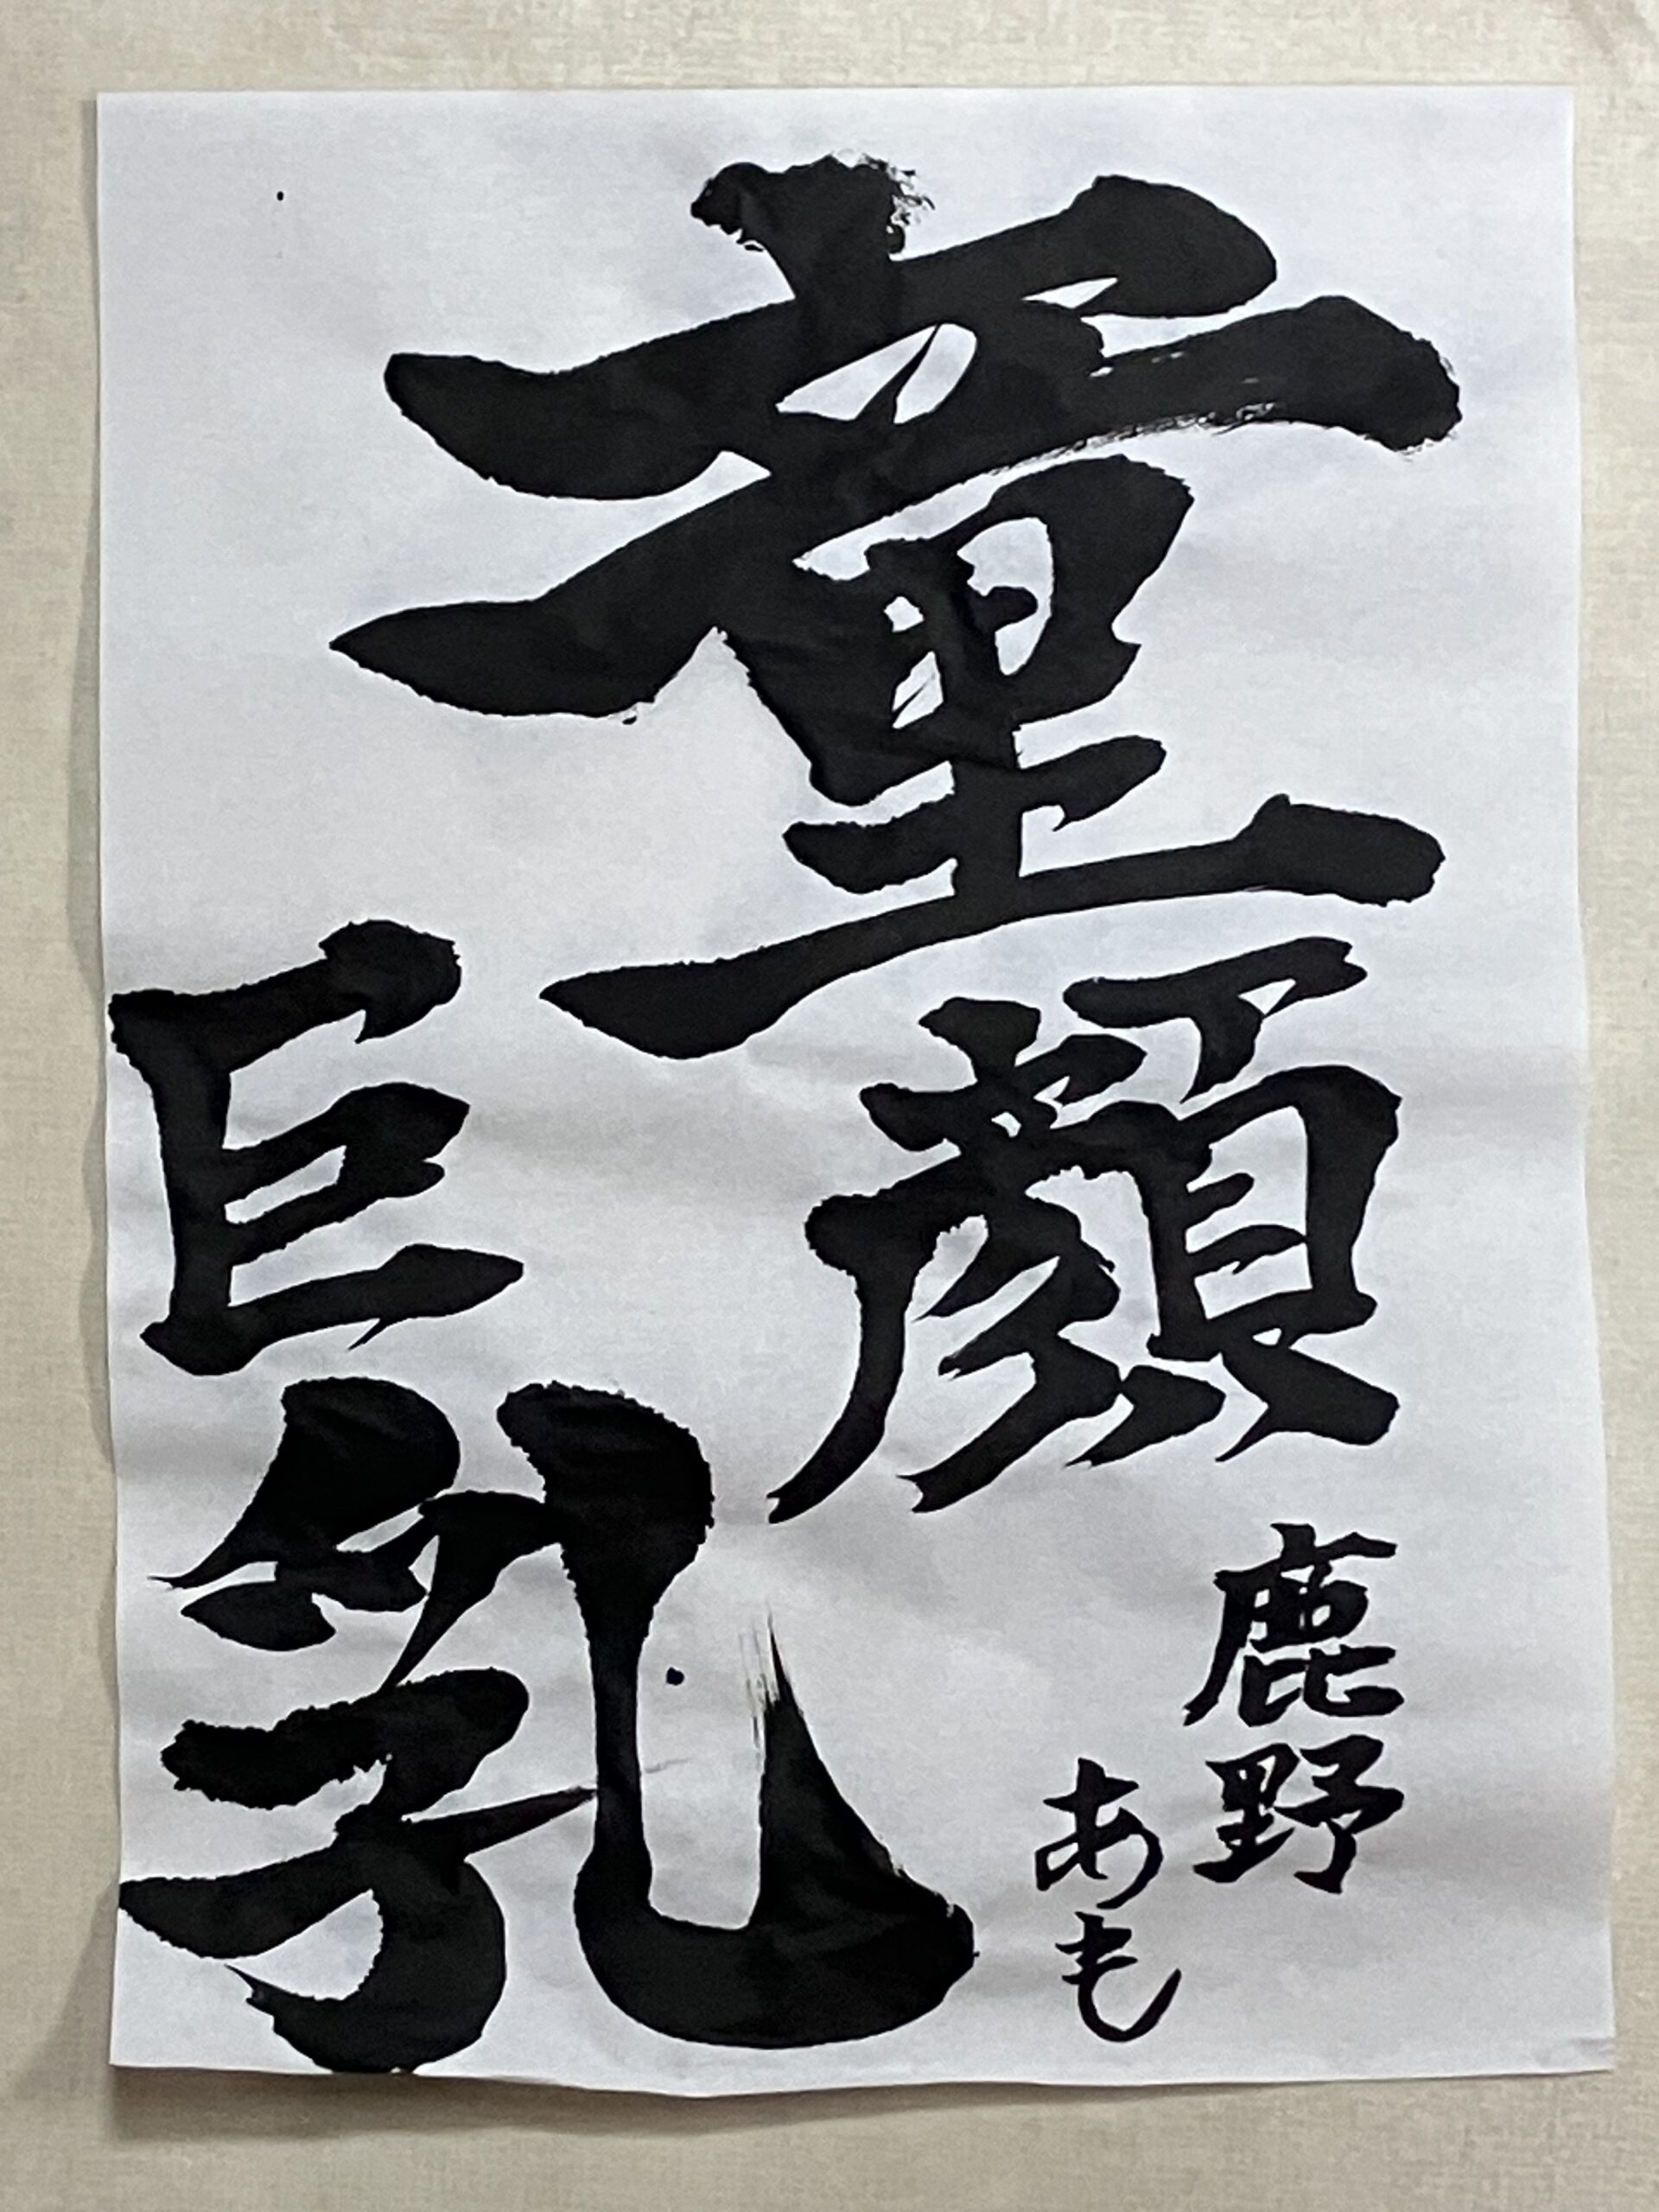 童顔
巨乳
鹿野
あも